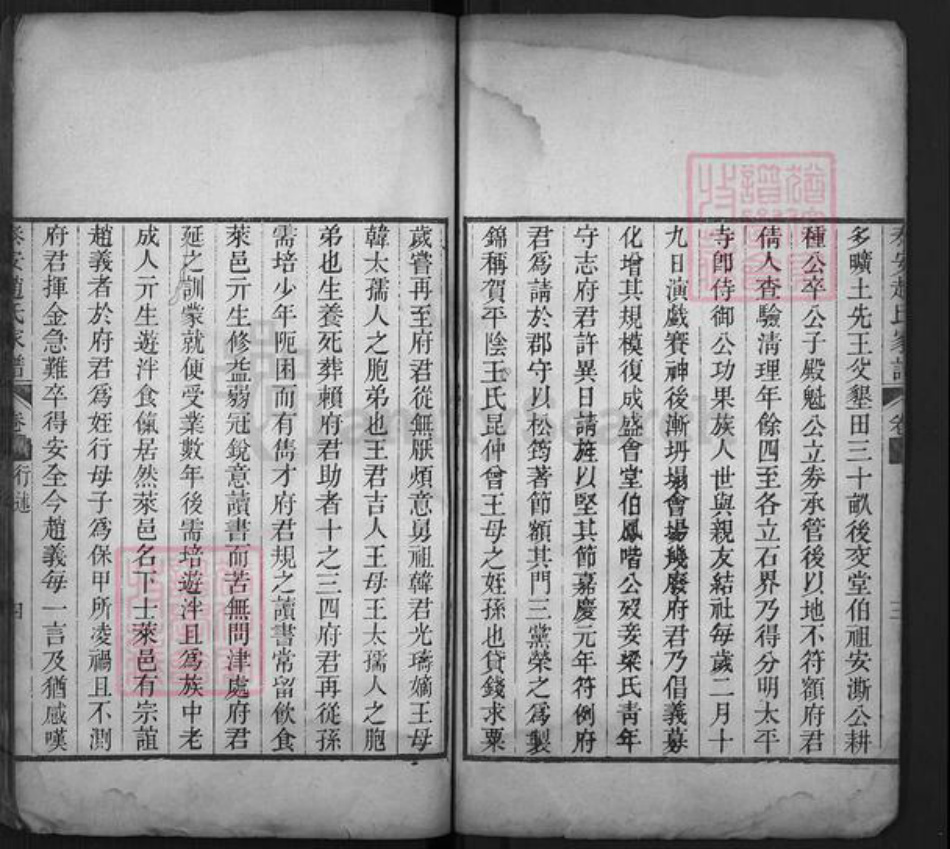 泰安趙氏家譜 卷
多曠土先王父墾田三十畝後交堂伯祖安澌公耕
種公卒公子殿魁公立劵承管後以地不符額府君
倩人查驗清理年餘四至各立石界乃得分明太平
寺卽侍御公功果族人世與親友結社每歲二月十
九日演戲賽神後漸坍塌會場幾廢府君乃倡義募
化增其規模復成盛會堂伯鳳喈公歿妾梁氏靑年
守志府君許異日請旌以堅其節嘉慶元年符例府
君爲請於郡守以松筠著節額其門三黨榮之爲製
錦稱賀平陰王氏昆仲曾王母之姪孫也貸錢求粟
歲嘗再至府君從無厭煩意舅祖韓君光琦嫡王母
韓太孺人之胞弟也王君吉人王母王太孺人之胞
弟也生養死葬賴府君助者十之三四府君再從孫
需培少年阨困而有雋才府君規之讀書常留飲食
萊邑亓生修益弱冠銳意讀書而苦無問津處府君
延之訓蒙就便受業數年後需培遊泮且爲族中老
成人亓生遊泮食餼居然萊邑名下士萊邑有宗誼
趙義者於府君爲姪行母子爲保甲所凌禍且不測
府君揮金急難卒得安全今趙義每一言及猶感嘆
泰安趙氏家譜 卷 行述 四